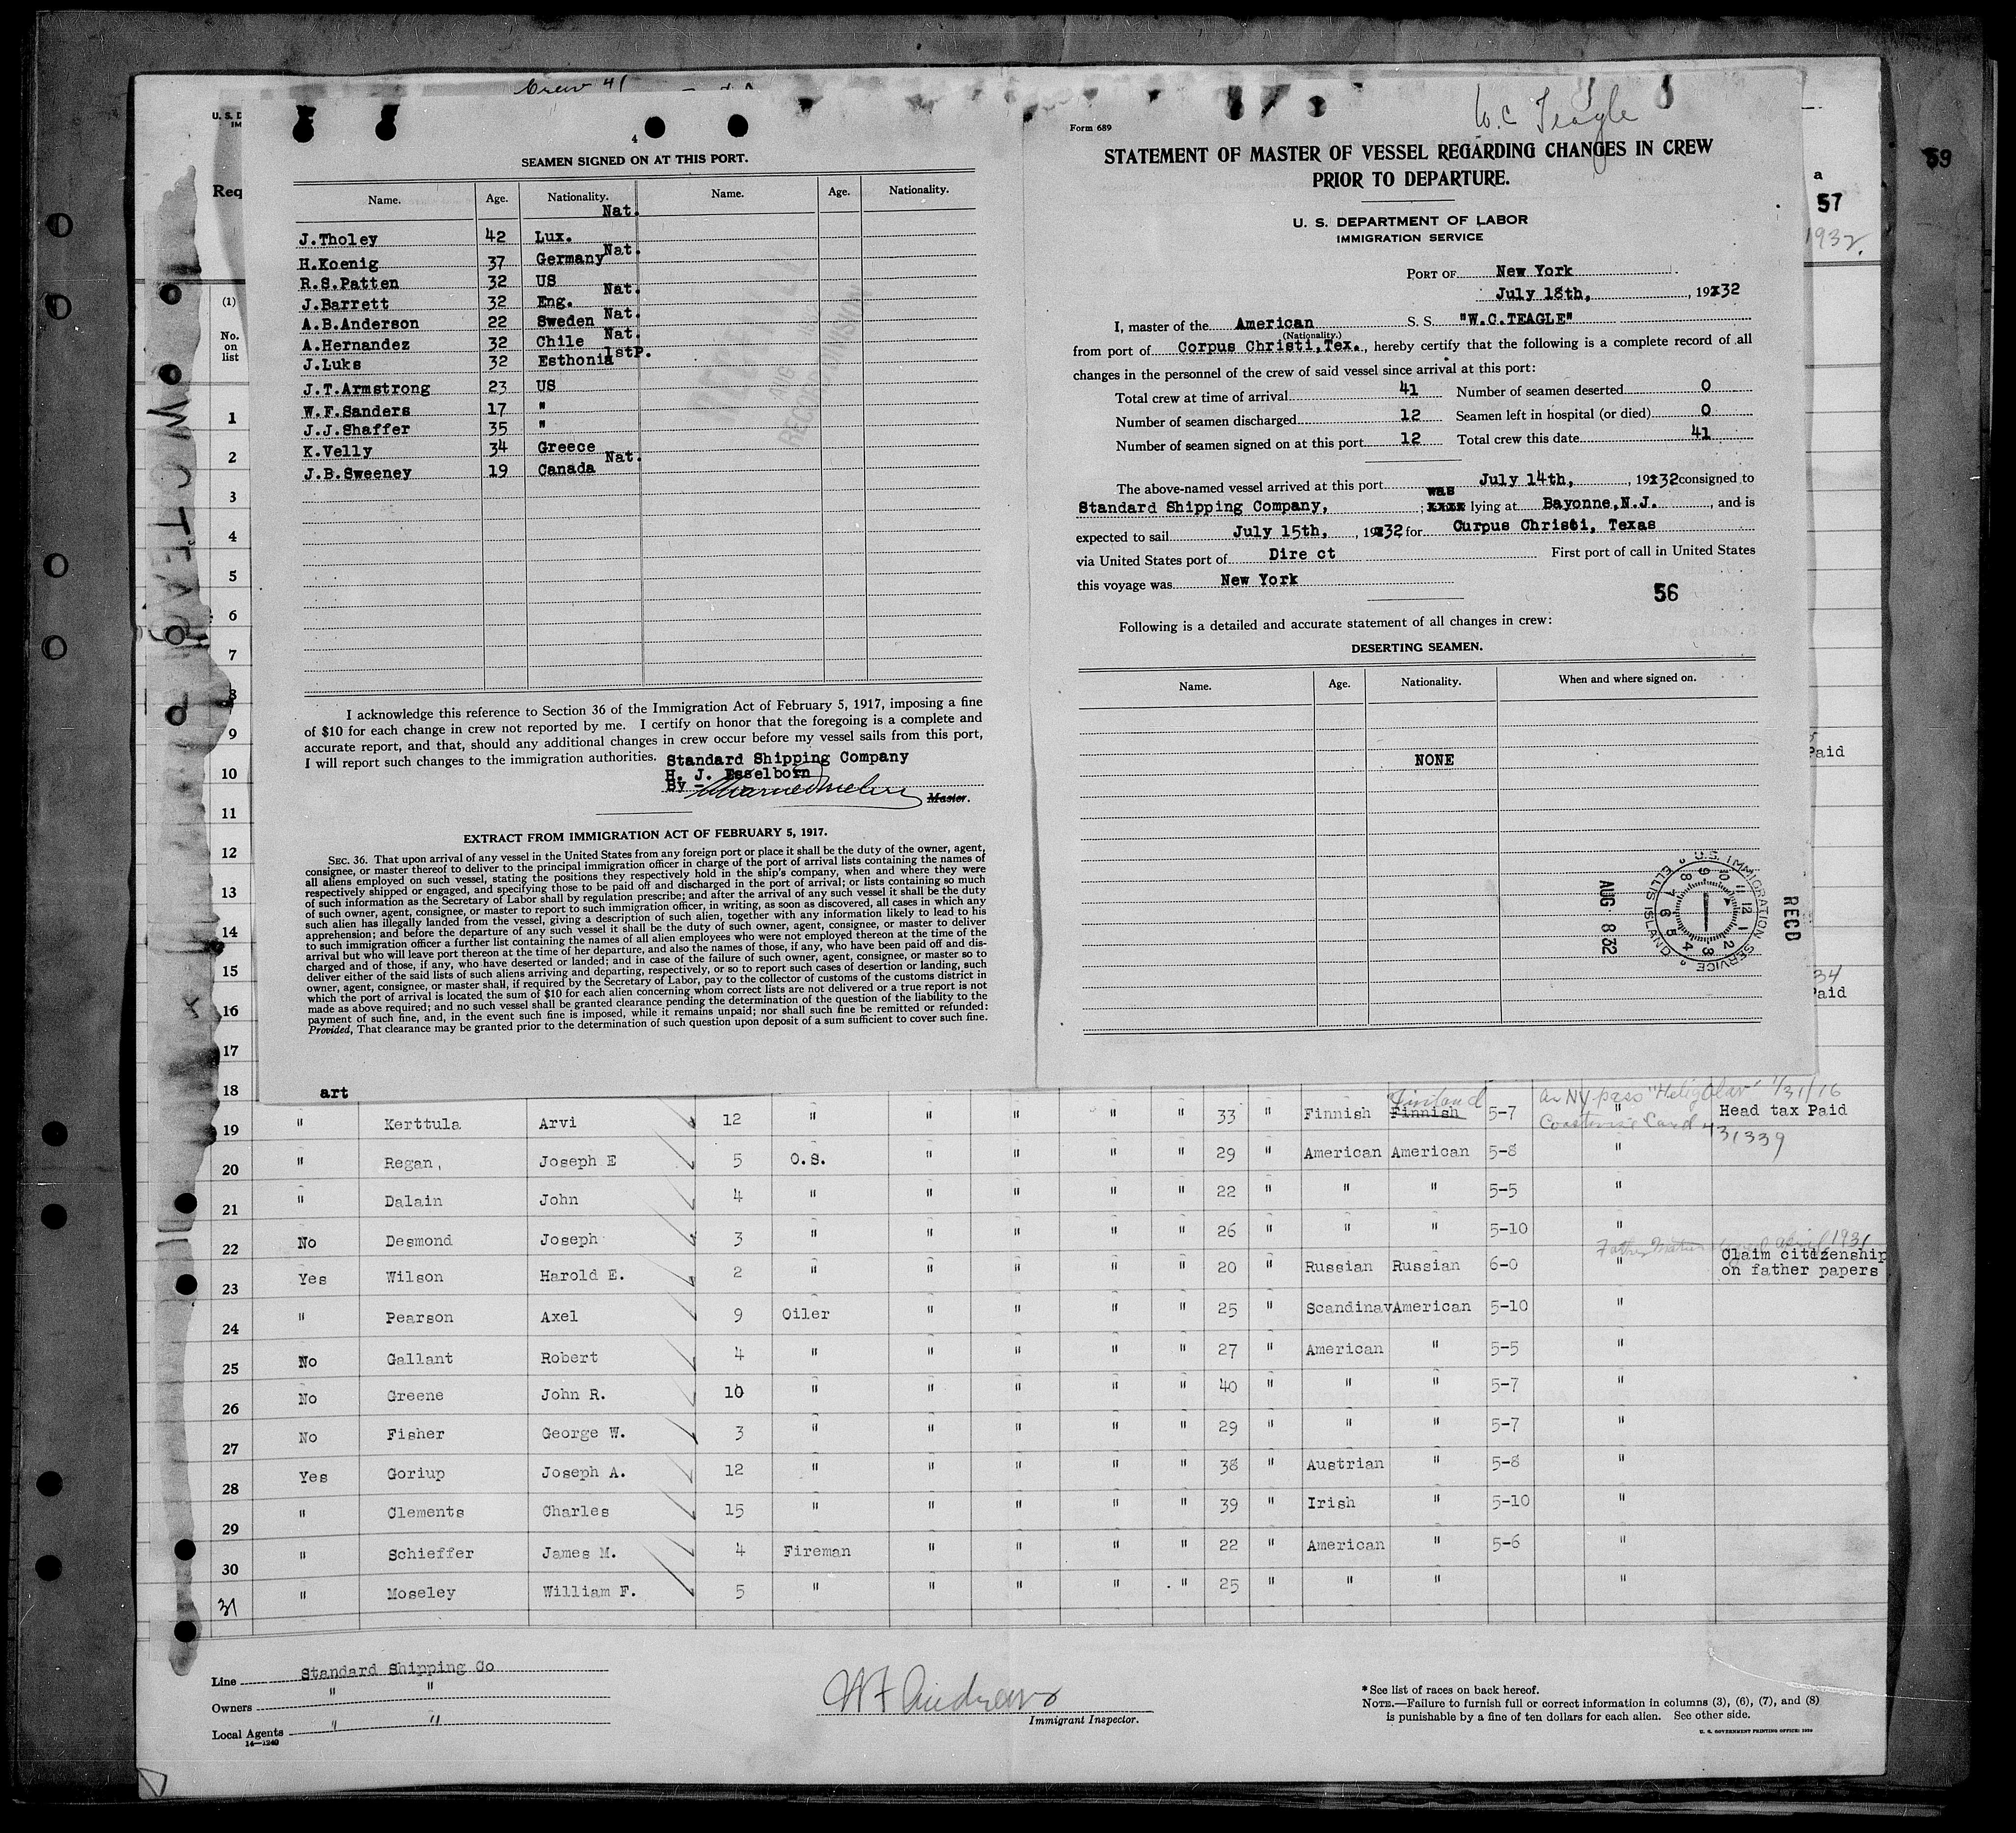 Crew 41
U. S. D
IM
Req
(1)
No.
on
list
4
SEAMEN SIGNED ON AT THIS PORT.
Name. Age. Nationality. Name. Age. Nationality.
J.Tholey 42 Lux. Nat.
H.Koenig 37 Germany Nat.
R.S.Patten 32 US
J.Barrett 32 Eng. Nat.
A.B.Anderson 22 Sweden Nat.
A.Hernandez 32 Chile Nat.
J.Luks 32 Esthonia 1stP.
J.T.Armstrong 23 US
W.F.Sanders 17 "
J.J.Shaffer 35 "
K.Velly 34 Greece
J.B.Sweeney 19 Canada Nat.
RECORD DIVISION
I acknowledge this reference to Section 36 of the Immigration Act of February 5, 1917, imposing a fine
of $10 for each change in crew not reported by me. I certify on honor that the foregoing is a complete and
accurate report, and that, should any additional changes in crew occur before my vessel sails from this port,
I will report such changes to the immigration authorities. Standard Shipping Company
H. J. Esselborn
By
Master.
EXTRACT FROM IMMIGRATION ACT OF FEBRUARY 5, 1917.
SEC. 36. That upon arrival of any vessel in the United States from any foreign port or place it shall be the duty of the owner, agent,
consignee, or master thereof to deliver to the principal immigration officer in charge of the port of arrival lists containing the names of
all aliens employed on such vessel, stating the positions they respectively hold in the ship's company, when and where they were
respectively shipped or engaged, and specifying those to be paid off and discharged in the port of arrival; or lists containing so much
of such information as the Secretary of Labor shall by regulation prescribe; and after the arrival of any such vessel it shall be the duty
of such owner, agent, consignee, or master to report to such immigration officer, in writing, as soon as discovered, all cases in which any
such alien has illegally landed from the vessel, giving a description of such alien, together with any information likely to lead to his
apprehension; and before the departure of any such vessel it shall be the duty of such owner, agent, consignee, or master to deliver
to such immigration officer a further list containing the names of all alien employees who were not employed thereon at the time of the
arrival but who will leave port thereon at the time of her departure, and also the names of those, if any, who have been paid off and dis-
charged and of those, if any, who have deserted or landed; and in case of the failure of such owner, agent, consignee, or master so to
deliver either of the said lists of such aliens arriving and departing, respectively, or so to report such cases of desertion or landing, such
owner, agent, consignee, or master shall, if required by the Secretary of Labor, pay to the collector of customs of the customs district in
which the port of arrival is located the sum of $10 for each alien concerning whom correct lists are not delivered or a true report is not
made as above required; and no such vessel shall be granted clearance pending the determination of the question of the liability to the
payment of such fine, and, in the event such fine is imposed, while it remains unpaid; nor shall such fine be remitted or refunded:
Provided, That clearance may be granted prior to the determination of such question upon deposit of a sum sufficient to cover such fine.
Form 689
W. C Teagle
STATEMENT OF MASTER OF VESSEL REGARDING CHANGES IN CREW
PRIOR TO DEPARTURE.
U. S. DEPARTMENT OF LABOR
IMMIGRATION SERVICE
PORT OF New York
July 18th, , 19232
I, master of the American S. S. "W.C.TEAGLE"
(Nationality.)
from port of Corpus Christi,Tex., hereby certify that the following is a complete record of all
changes in the personnel of the crew of said vessel since arrival at this port:
Total crew at time of arrival 41 Number of seamen deserted 0
Number of seamen discharged 12 Seamen left in hospital (or died) 0
Number of seamen signed on at this port 12 Total crew this date 41
The above-named vessel arrived at this port July 14th, , 19232 consigned to
Standard Shipping Company, ; was xxxx lying at Bayonne,N.J. , and is
expected to sail July 15th, , 19232 for Curpus Christi, Texas
via United States port of Dire ct First port of call in United States
this voyage was New York
56
Following is a detailed and accurate statement of all changes in crew:
DESERTING SEAMEN.
Name. Age. Nationality. When and where signed on.
NONE
RECD
U.S. IMMIGRATION SERVICE ELLIS ISLAND
12 1 2 3 4 5 6 7 8 9 10 11
AUG 8 32
59
a
57
1932
Paid
34
Paid
W C TEAGLE
1
2
3
4
5
6
7
8
9
10
11
12
13
14
15
16
17
18 art
19 " Kerttula Arvi 12 " " " " " 33 " Finnish Finnish Finland 5-7 " Head tax Paid
ar NY pass "Helig Olav" 1/31/16
Coastwise Card 431339
20 " Regan, Joseph E 5 O.S. " " " " 29 " American American 5-8 "
21 " Dalain John 4 " " " " " 22 " " " 5-5 "
22 No Desmond Joseph 3 " " " " " 26 " " " 5-10 "
23 Yes Wilson Harold E. 2 " " " " " 20 " Russian Russian 6-0 " Claim citizenship
on father papers
Father April 1931
24 " Pearson Axel 9 Oiler " " " " 25 " Scandinav American 5-10 "
25 No Gallant Robert 4 " " " " " 27 " American " 5-5 "
26 No Greene John R. 10 " " " " " 40 " " " 5-7 "
27 No Fisher George W. 3 " " " " " 29 " " " 5-7 "
28 Yes Goriup Joseph A. 12 " " " " " 38 " Austrian " 5-8 "
29 " Clements Charles 15 " " " " " 39 " Irish " 5-10 "
30 " Schieffer James M. 4 Fireman " " " " 22 " American " 5-6 "
31 " Moseley William F. 5 " " " " " 25 " " " "
Line Standard Shipping Co
Owners " "
Local Agents " "
14—1240
W F Andrews
Immigrant Inspector.
* See list of races on back hereof.
NOTE.—Failure to furnish full or correct information in columns (3), (6), (7), and (8)
is punishable by a fine of ten dollars for each alien. See other side.
U. S. GOVERNMENT PRINTING OFFICE: 1930